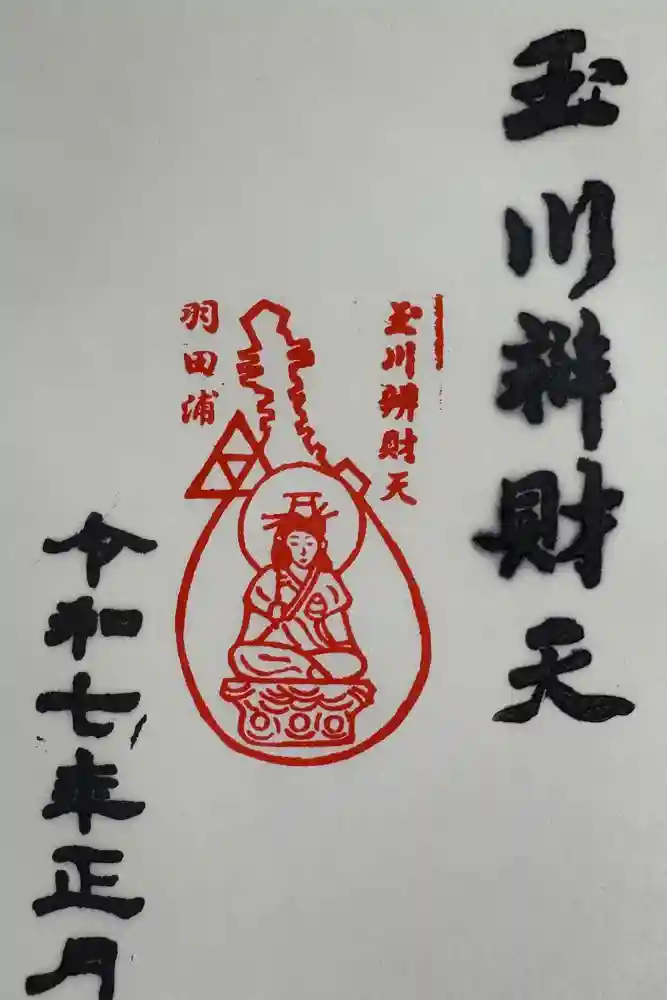 玉川辨財天
玉川辨財天
羽田浦
令和七年正月